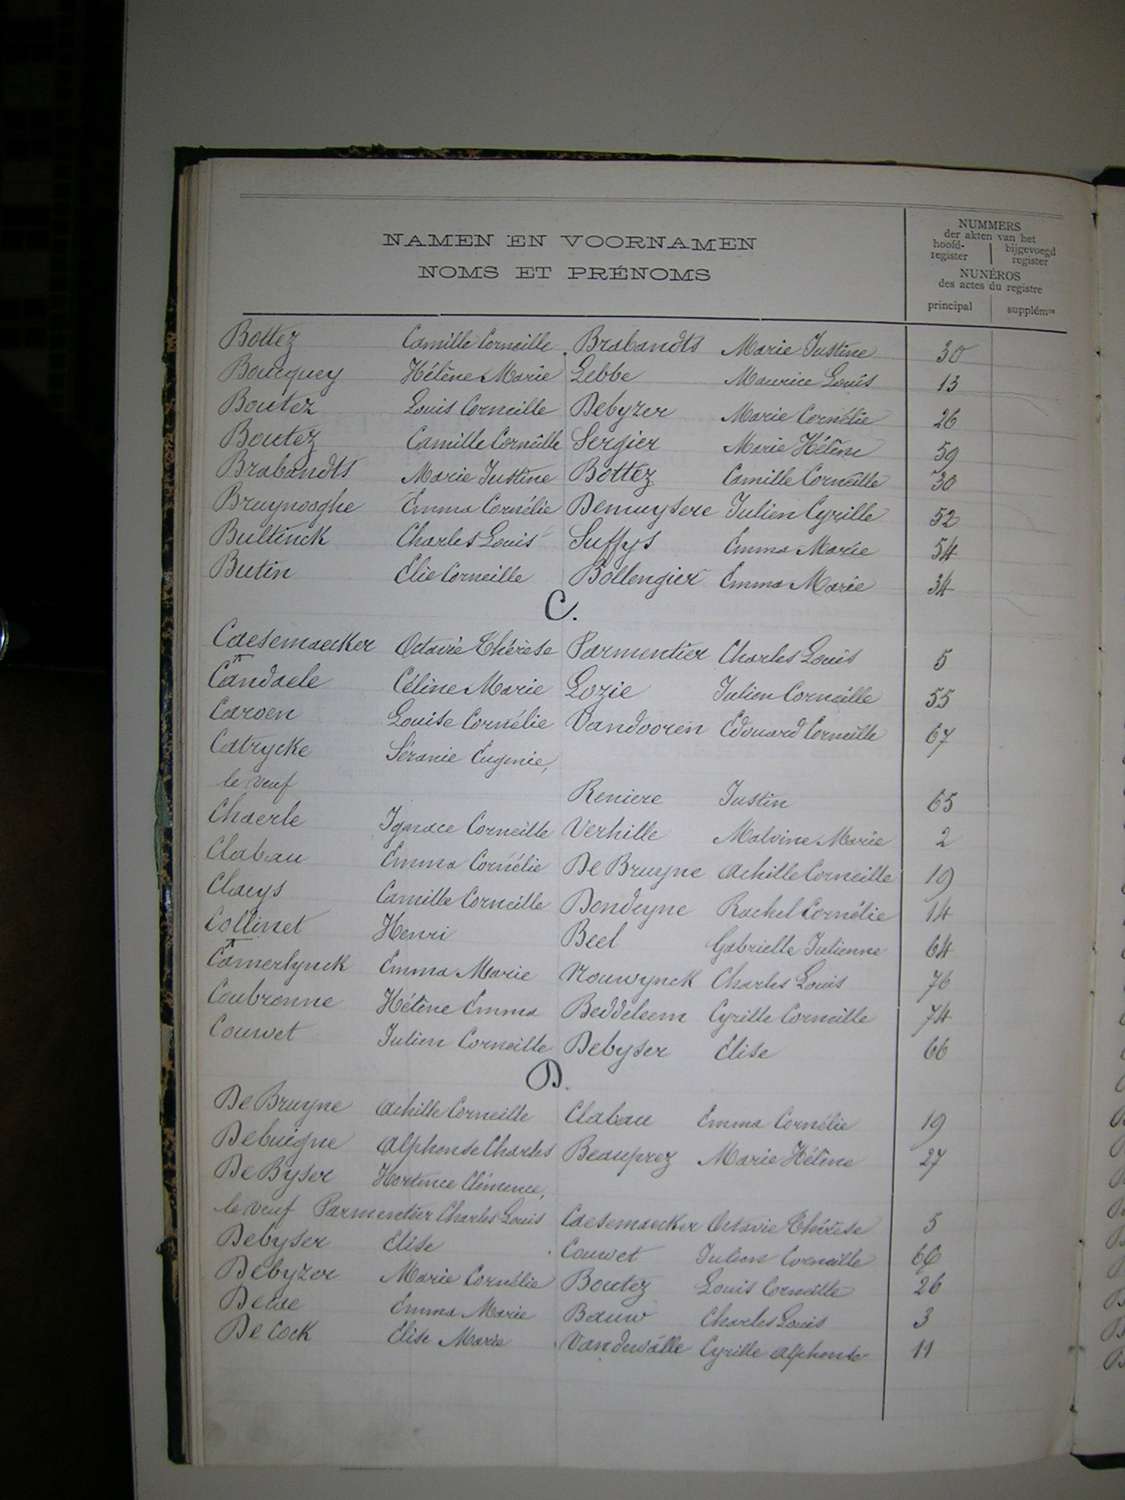 NAMEN EN VOORNAMEN
NOMS ET PRÉNOMS
NUMMERS
der akten van het
hoofd-register | bijgevoegd register
NUNÉROS
des actes du registre
principal | supplémre
Bottez Camille Corneille Brabandts Marie Justine 30
Boucquey Hélène Marie Lebbe Maurice Louis 13
Boutez Louis Corneille Debyzer Marie Cornélie 26
Boutez Camille Corneille Sergier Marie Hélène 59
Brabandts Marie Justine Bottez Camille Corneille 30
Bruynooghe Emma Cornélie Demuysere Julien Cyrille 52
Bultinck Charles Louis Suffys Emma Marie 54
Butin Elie Corneille Bollengier Emma Marie 34
C.
Caesemaecker Octavie Thérèse Parmentier Charles Louis 5
Candaele Céline Marie Lozie Julien Corneille 55
Caroen Louise Cornélie Vandooren Edouard Corneille 67
Catrycke Séranie Eugenie,
le veuf Reniere Justin 65
Chaerle Ignace Corneille Verhille Malvine Marie 2
Clabau Emma Cornélie De Bruyne Achille Corneille 19
Claeys Camille Corneille Dondeyne Rachel Cornélie 14
Collinet Henri Beel Gabrielle Julienne 64
Camerlynck Emma Marie Nouwynck Charles Louis 76
Coubronne Hélène Emma Beddeleem Cyrille Corneille 74
Couwet Julien Corneille Debyser Elise 66
D.
De Bruyne Achille Corneille Clabau Emma Cornélie 19
Debuigne Alphonse Charles Beauprez Marie Hélène 27
De Byser Hortence Clémence,
le veuf Parmentier Charles Louis Caesemaecker Octavie Thérèse 5
Debyser Elise Couwet Julien Corneille 66
Debyzer Marie Cornélie Boutez Louis Corneille 26
Decae Emma Marie Bauw Charles Louis 3
De Cock Elise Marie Vandewalle Cyrille Alphonse 11